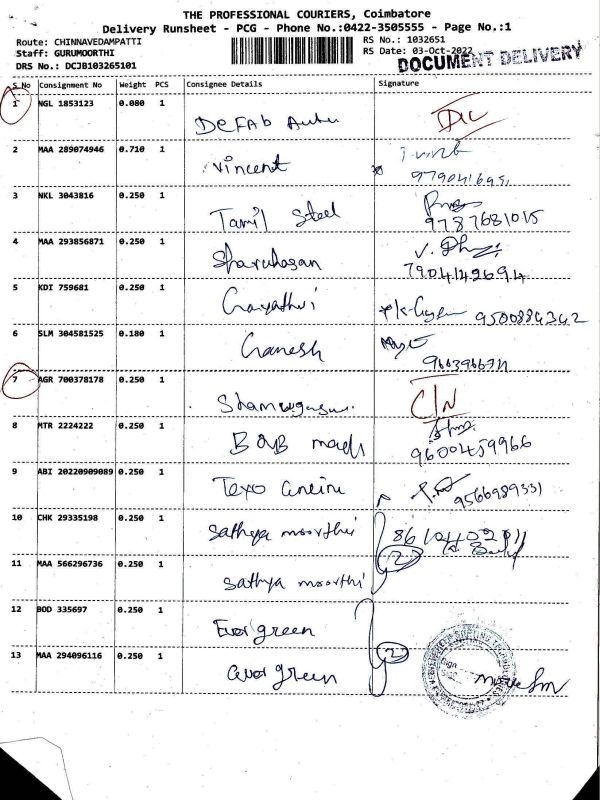 THE PROFESSIONAL COURIERS, Coimbatore
Delivery Runsheet - PCG - Phone No.:0422-3505555 - Page No.:1
Route: CHINNAVEDAMPATTI RS No.: 1032651
Staff: GURUMOORTHI RS Date: 03-Oct-2022
DRS No.: DCJB103265101 DOCUMENT DELIVERY
S No Consignment No Weight PCS Consignee Details Signature
1 NGL 1853123 0.080 1
DEFAB
2 MAA 289074946 0.710 1
Vincent
3 NKL 3043816 0.250 1
Tamil Steel 9787681015
4 MAA 293856871 0.250 1
Sharuhasan 7904142694
5 KDI 759681 0.250 1
Gayathri 9500884342
6 SLM 304581525 0.180 1
Ganesh
7 AGR 700378178 0.250 1
C/N
8 MTR 2224222 0.250 1
9600459966
9 ABI 20220909089 0.250 1
Texo 9566989331
10 CHK 29335198 0.250 1
Sathya moorthi
2
11 MAA 566296736 0.250 1
Sathya moorthi
12 BOD 335697 0.250 1
Ever green
2
13 MAA 294096116 0.250 1
ever green